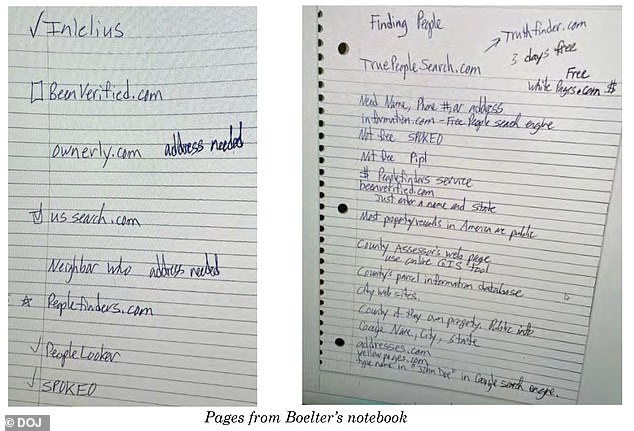 ✓ Intelius
☐ BeenVerified.com
ownerly.com address needed
☑ ussearch.com
Neighbor who address needed
☆ Peoplefinders.com
✓ PeopleLooker
✓ SPOKEO
© DOJ
Finding People
Truthfinder.com
3 days free
TruePeopleSearch.com
Free
White Pages.com $
Need Name, Phone #, or address
information.com - Free People search engine
Not free SPOKEO
Not free Pipl
$ Peoplefinders service
beenverified.com
Just enter a name and state
Most property records in America are public
County Assessor's web page
use online GIS tool
County's parcel information database
city web sites.
County if they own property. Public info
Google Name, City, State
addresses.com
yellowpages.com
type name in "John Doe" in Google search engine.
Pages from Boelter's notebook